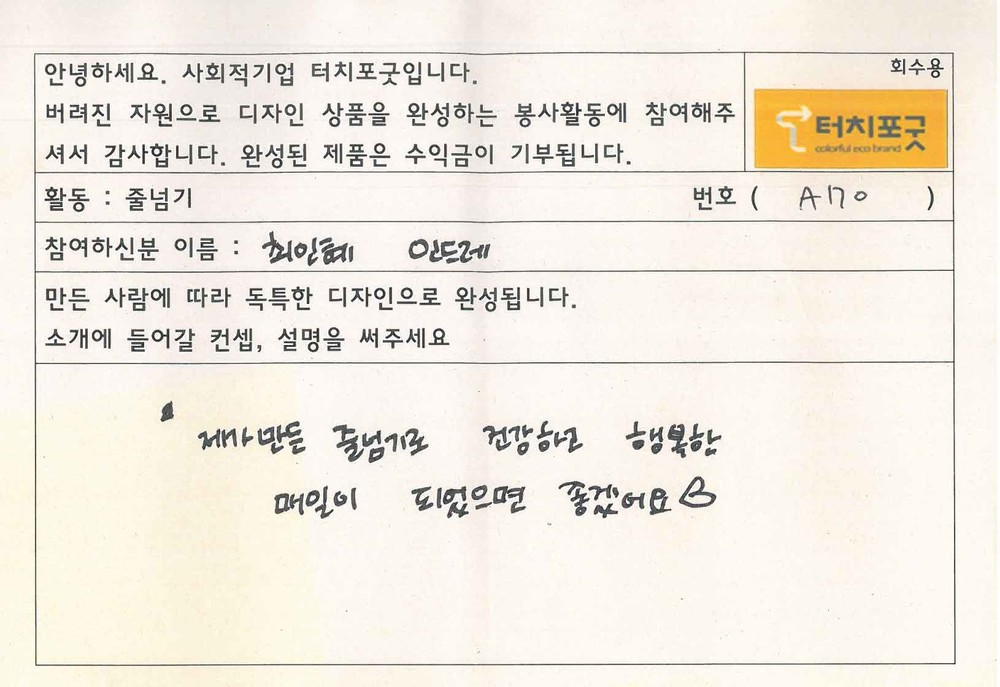 안녕하세요. 사회적기업 터치포굿입니다.
회수용
버려진 자원으로 디자인 상품을 완성하는 봉사활동에 참여해주
셔서 감사합니다. 완성된 제품은 수익금이 기부됩니다.
터치포굿
colorful eco brand
활동 : 줄넘기
번호 ( A170 )
참여하신분 이름 : 안드레
만든 사람에 따라 독특한 디자인으로 완성됩니다.
소개에 들어갈 컨셉, 설명을 써주세요
제가 만든 줄넘기로 건강하고 행복한
매일이 되었으면 좋겠어요